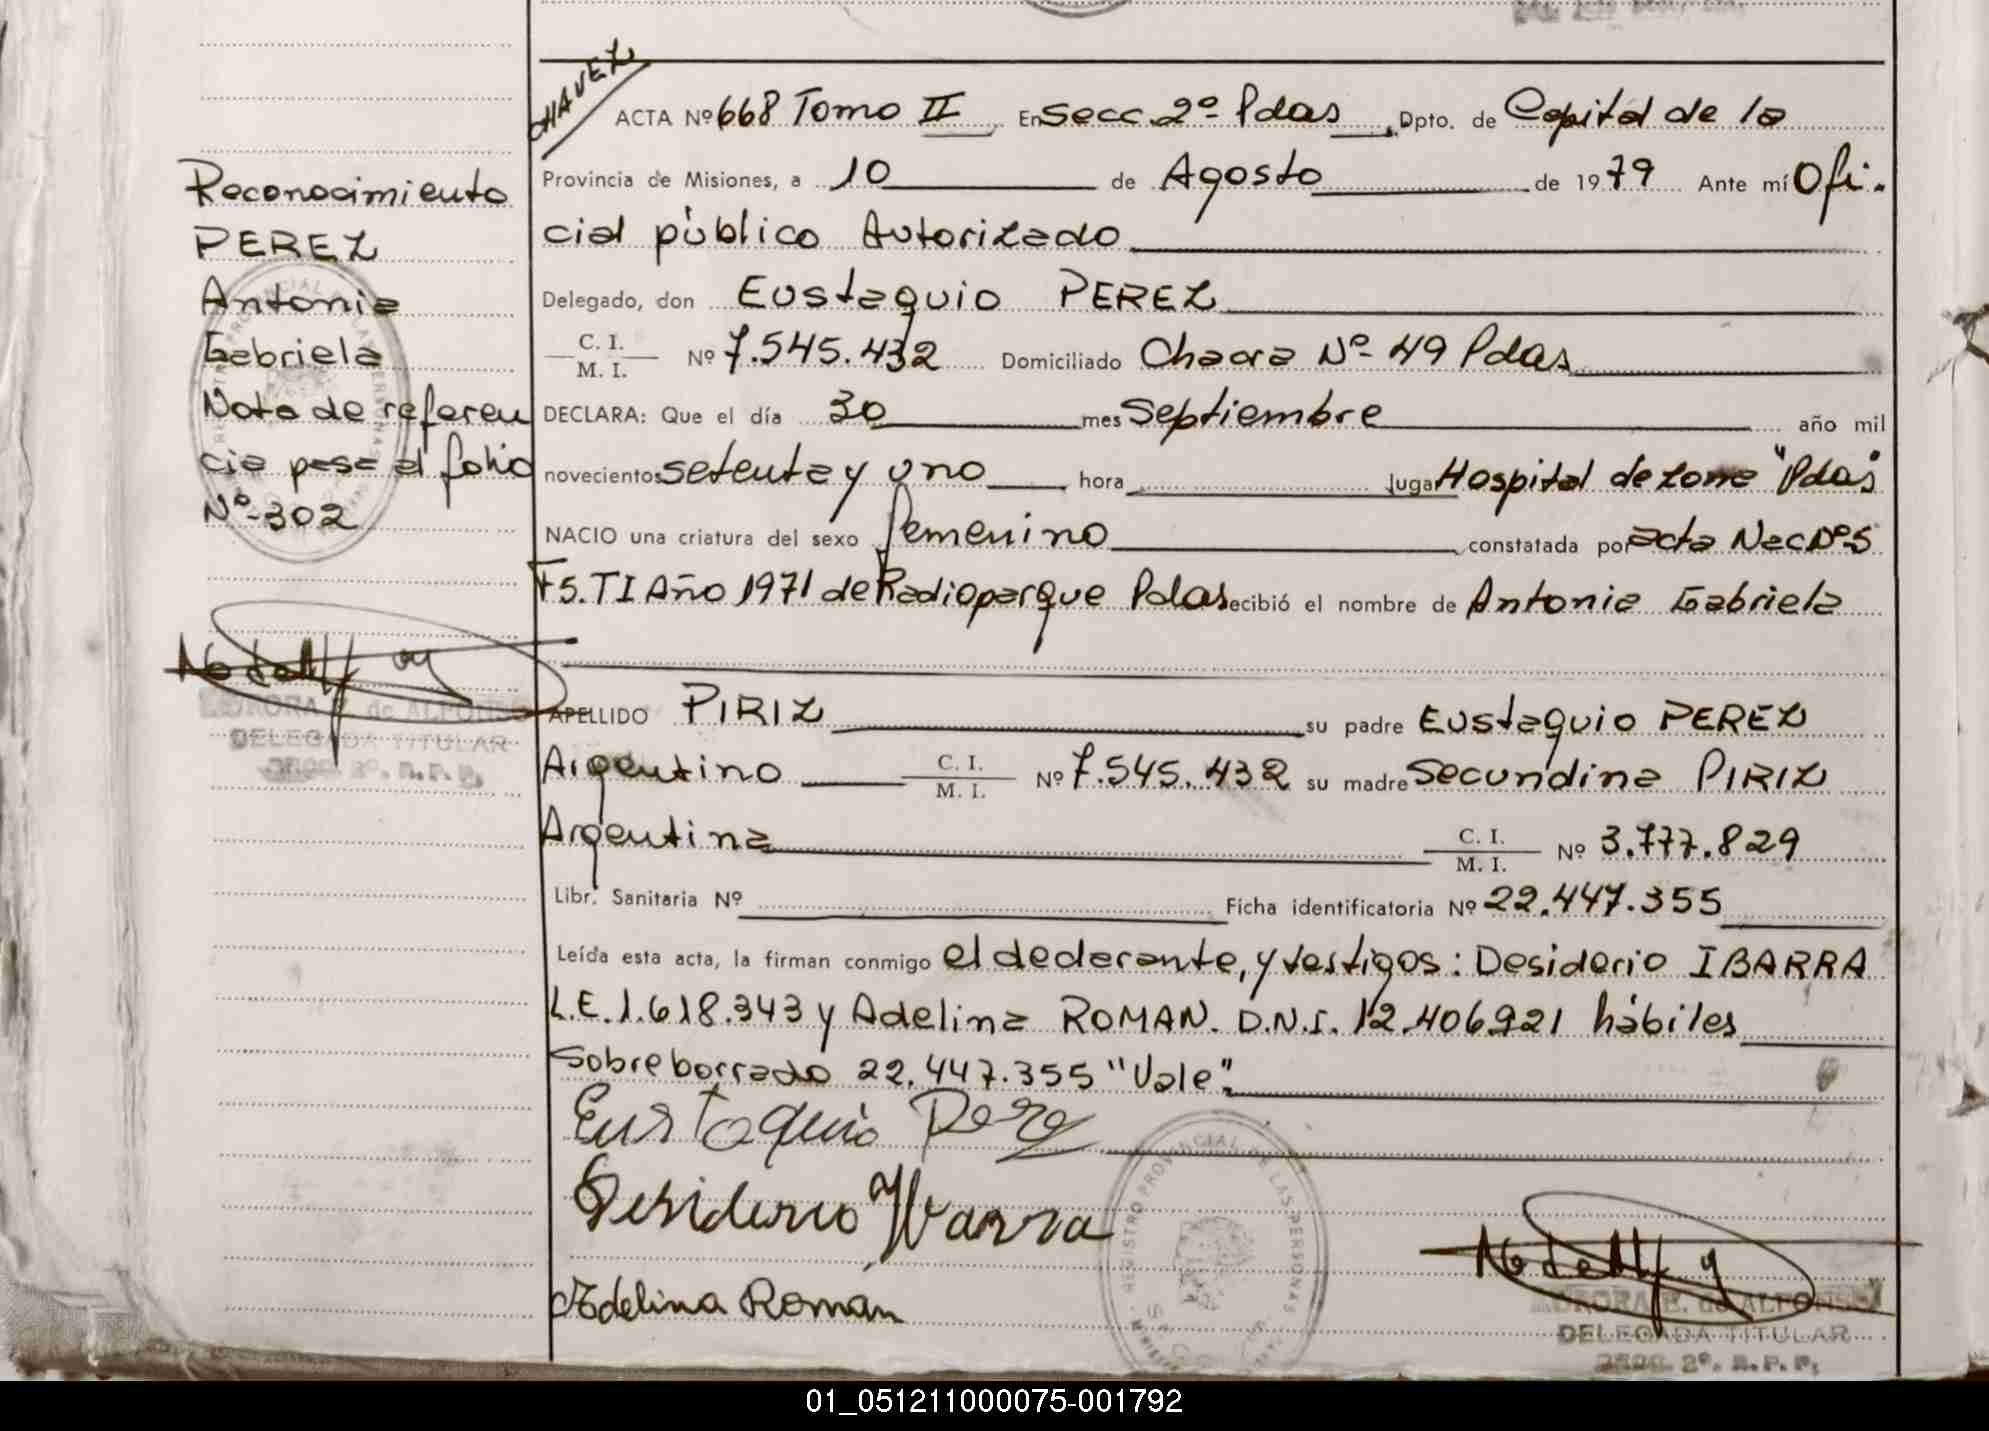 CHAVEZ
ACTA Nº 668 Tomo II En Secc. 2º Pdas, Dpto. de Capital de la
Provincia de Misiones, a 10 de Agosto de 1979 Ante mí Ofi-
cial público Autorizado
Delegado, don Eustaquio PEREZ
C. I. / M. I. Nº 7.545.432 Domiciliado Chacra Nº 49 Pdas
DECLARA: Que el día 30 mes Septiembre año mil
novecientos setenta y uno hora lugar Hospital de zona "Pdas"
NACIO una criatura del sexo femenino constatada por acta Nac Nº 5
F5. TI Año 1971 de Radioparque Pdas recibió el nombre de Antonia Gabriela
APELLIDO PIRIZ su padre Eustaquio PEREZ
Argentino C. I. / M. I. Nº 7.545.432 su madre Secundina PIRIZ
Argentina C. I. / M. I. Nº 3.777.829
Libr. Sanitaria Nº Ficha identificatoria Nº 22.447.355
Leída esta acta, la firman conmigo el declarante, y testigos: Desiderio IBARRA
L.E. 1.618.343 y Adelina ROMAN. D.N.I. 12.406.921 hábiles
Sobre borrado 22.447.355 "Vale".
Eustaquio Perez
Desiderio Ybarra
Adelina Roman
REGISTRO PROVINCIAL DE LAS PERSONAS
E. de ALFONSO
DELEGADA TITULAR
SECC. 2º. R. P. P.
Reconocimiento
PEREZ
Antonia
Gabriela
Nota de referen
cia pasa al folio
Nº 302
E. de ALFONSO
DELEGADA TITULAR
SECC. 2º. R. P. P.
01_051211000075-001792